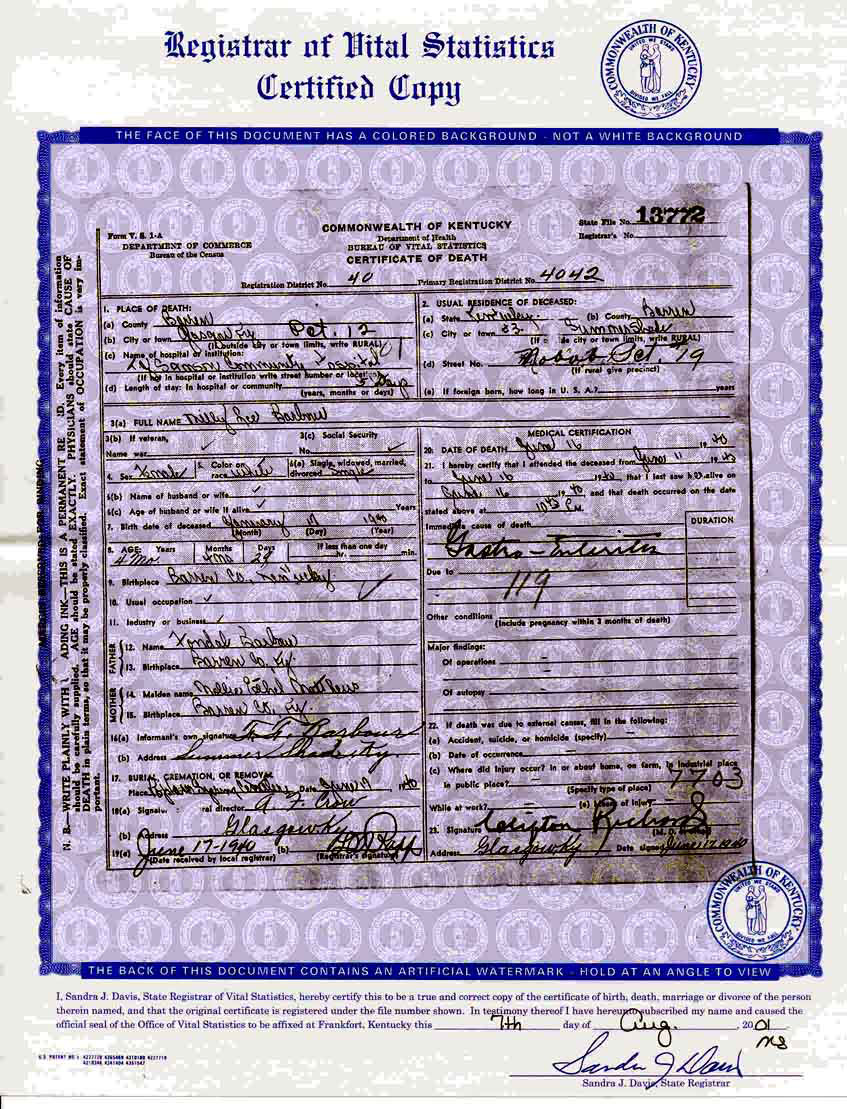 Registrar of Vital Statistics
Certified Copy
COMMONWEALTH OF KENTUCKY
UNITED WE STAND
DIVIDED WE FALL
THE FACE OF THIS DOCUMENT HAS A COLORED BACKGROUND - NOT A WHITE BACKGROUND
Form V. S. 1-A
DEPARTMENT OF COMMERCE
Bureau of the Census
COMMONWEALTH OF KENTUCKY
Department of Health
BUREAU OF VITAL STATISTICS
CERTIFICATE OF DEATH
State File No. 13772
Registrar's No.
Registration District No. 40 Primary Registration District No. 4042
1. PLACE OF DEATH:
(a) County Barren
(b) City or town Glasgow Ky Pct. 12
(If outside city or town limits, write RURAL)
(c) Name of hospital or institution:
T J Samson Community Hospital
(If not in hospital or institution write street number or location)
(d) Length of stay: In hospital or community 5 Days
(years, months or days)
2. USUAL RESIDENCE OF DECEASED:
(a) State Kentucky (b) County Barren
(c) City or town Summer Shade
(If outside city or town limits, write RURAL)
(d) Street No. Pct. 19
(If rural give precinct)
(e) If foreign born, how long in U. S. A.? years
3(a) FULL NAME Nelly Lee Barbour
3(b) If veteran,
Name war
3(c) Social Security
No.
4. Sex Female 5. Color or race White 6(a) Single, widowed, married, divorced Single
6(b) Name of husband or wife
6(c) Age of husband or wife if alive Years
7. Birth date of deceased January 17 1940
(Month) (Day) (Year)
8. AGE: Years Months Days If less than one day
4 Mo 4 mo 29 hr. min.
9. Birthplace Barren Co, Kentucky
10. Usual occupation
11. Industry or business
FATHER
12. Name Barbour
13. Birthplace Barren Co. Ky.
MOTHER
14. Maiden name Nellie Ethel Matthews
15. Birthplace Barren Co, Ky.
16(a) Informant's own signature Barbour
(b) Address Summer Shade, Ky.
17. BURIAL, CREMATION, OR REMOVAL
Place Cemetery Date June 17 1940
18(a) Signature of funeral director A. F. Crow
(b) Address Glasgow Ky
19(a) June 17-1940 (b)
(Date received by local registrar) (Registrar's signature)
MEDICAL CERTIFICATION
20. DATE OF DEATH June 16 1940
21. I hereby certify that I attended the deceased from June 11 1940
to June 16 1940, that I last saw her alive on
June 16 1940 and that death occurred on the date
stated above at 10 P.M.
Immediate cause of death DURATION
Gastro-Enteritis
Due to
119
Other conditions
(Include pregnancy within 3 months of death)
Major findings:
Of operations
Of autopsy
22. If death was due to external causes, fill in the following:
(a) Accident, suicide, or homicide (specify)
(b) Date of occurrence
(c) Where did injury occur? In or about home, on farm, in industrial place
in public place? 7703
(Specify type of place)
While at work? (e) Means of injury
23. Signature
Address Glasgow Ky Date signed June 17 1940
N. B.—WRITE PLAINLY WITH ADING INK—THIS IS A PERMANENT RE D. Every item of information
should be carefully supplied. AGE should be stated EXACTLY. PHYSICIANS should state CAUSE OF
DEATH in plain terms, so that it may be properly classified. Exact statement of OCCUPATION is very im-
portant.
COMMONWEALTH OF KENTUCKY
UNITED WE STAND
DIVIDED WE FALL
THE BACK OF THIS DOCUMENT CONTAINS AN ARTIFICIAL WATERMARK - HOLD AT AN ANGLE TO VIEW
I, Sandra J. Davis, State Registrar of Vital Statistics, hereby certify this to be a true and correct copy of the certificate of birth, death, marriage or divorce of the person
therein named, and that the original certificate is registered under the file number shown. In testimony thereof I have hereunto subscribed my name and caused the
official seal of the Office of Vital Statistics to be affixed at Frankfort, Kentucky this 7th day of Aug. , 2001
Sandra J Davis
Sandra J. Davis, State Registrar